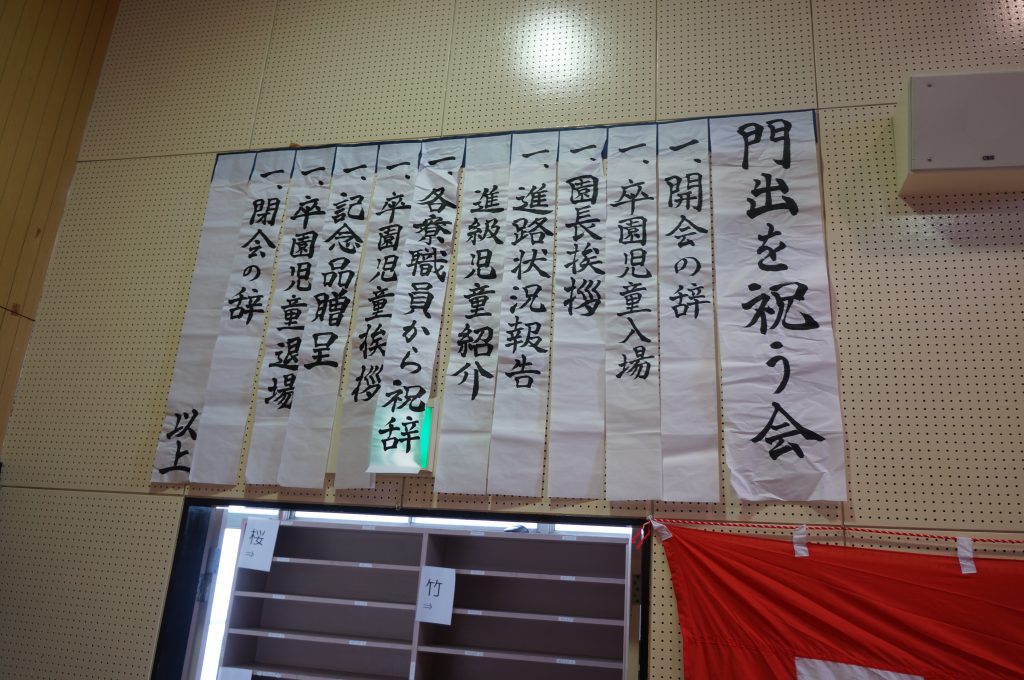 門出を祝う会
一、開会の辞
一、卒園児童入場
一、園長挨拶
一、進路状況報告
進級児童紹介
一、各寮職員から祝辞
一、卒園児童挨拶
一、記念品贈呈
一、卒園児童退場
一、閉会の辞
以上
桜
⇒
竹
⇒